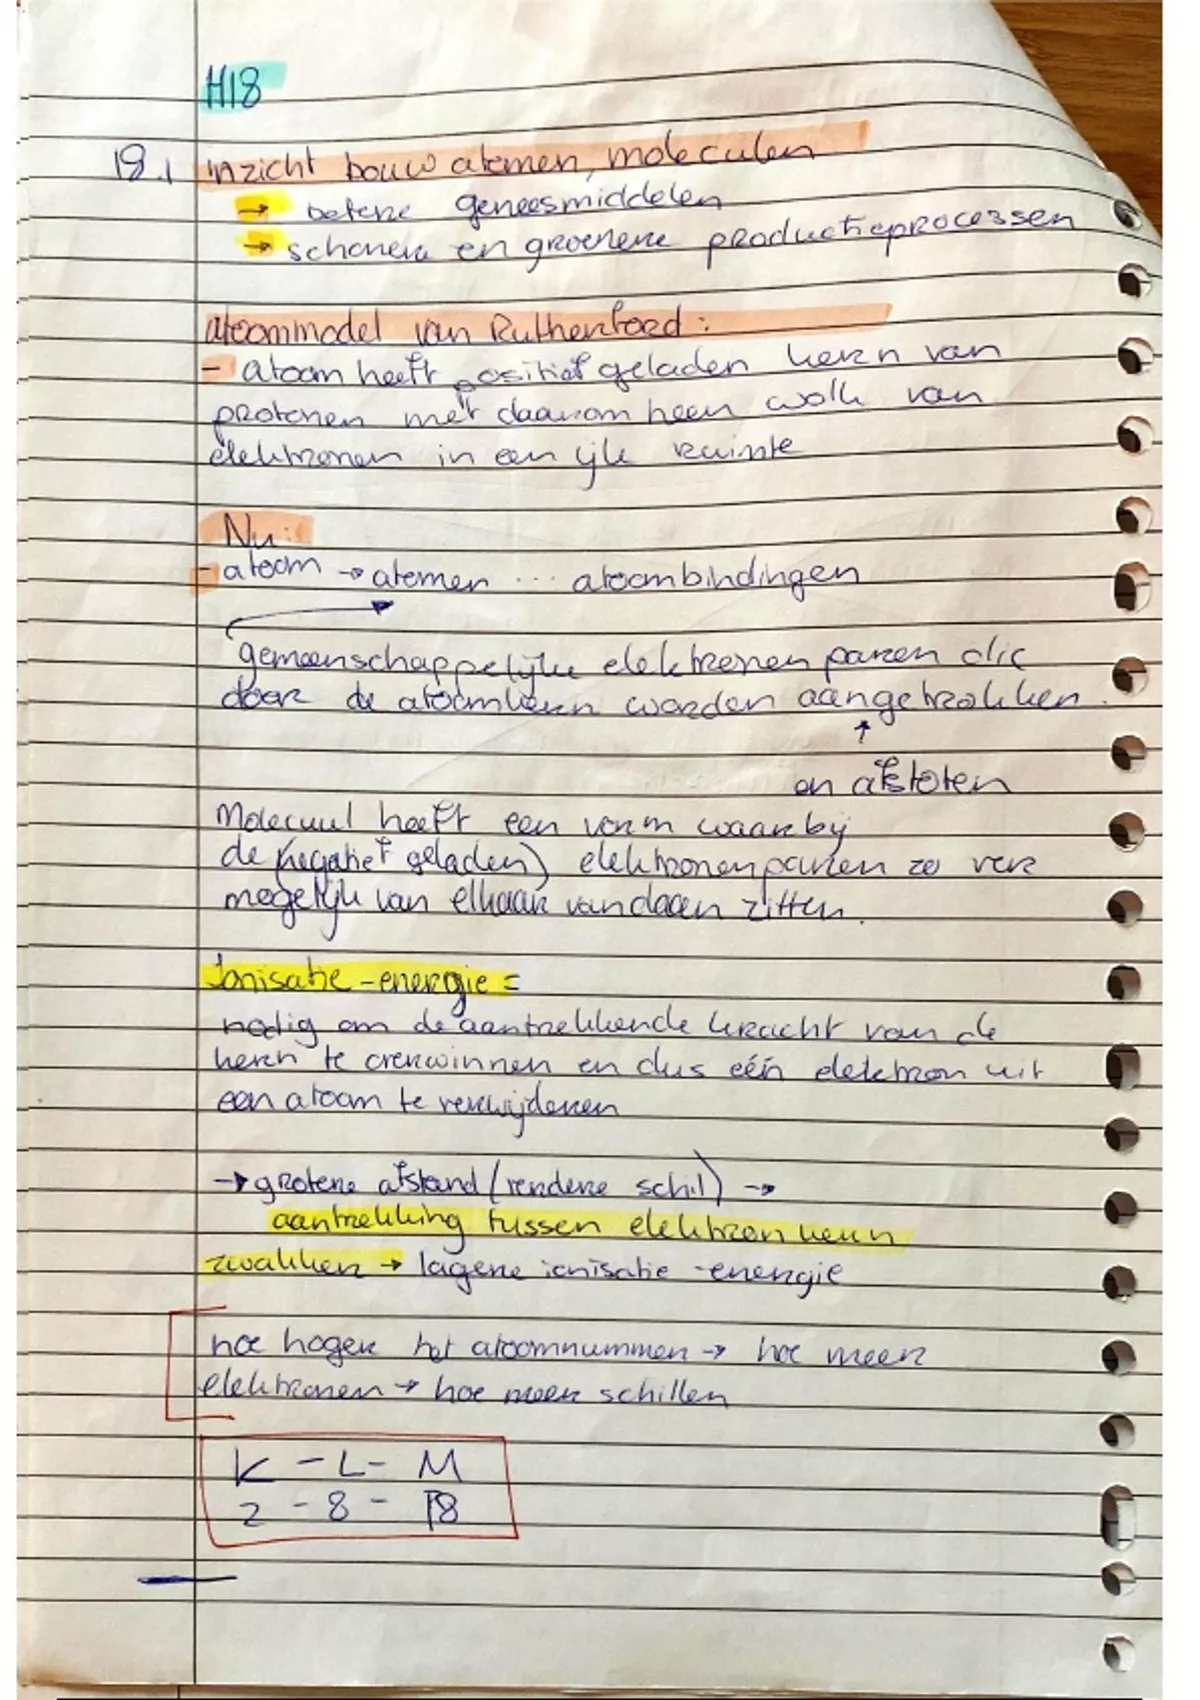 H18
18.1 inzicht bouw atomen, moleculen
→ betere geneesmiddelen
→ schonere en groenere productieprocessen
atoommodel van Rutherford:
- atoom heeft positief geladen kern van
protonen met daarom heen wolk van
elektronen in een ijle ruimte
Nu:
- atoom → atomen ... atoombindingen
gemeenschappelijke elektronen paren die
door de atoomkern worden aangetrokken.
↑
en afstoten
Molecuul heeft een vorm waarbij
de (negatief geladen) elektronenparen zo ver
mogelijk van elkaar vandaan zitten.
Ionisatie-energie =
nodig om de aantrekkende kracht van de
kern te overwinnen en dus één elektron uit
een atoom te verwijderen
→ grotere afstand (verdere schil) →
aantrekking tussen elektron kern
zwakker → lagere ionisatie-energie
hoe hoger het atoomnummer → hoe meer
elektronen → hoe meer schillen
K - L - M
2 - 8 - 18